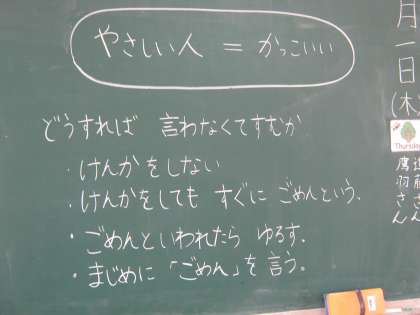 やさしい人 = かっこいい
どうすれば 言わなくてすむか
・けんかをしない
・けんかをしても すぐに ごめんという.
・ごめんといわれたら ゆるす.
・まじめに「ごめん」を 言う.
月一日(木)
Thursday